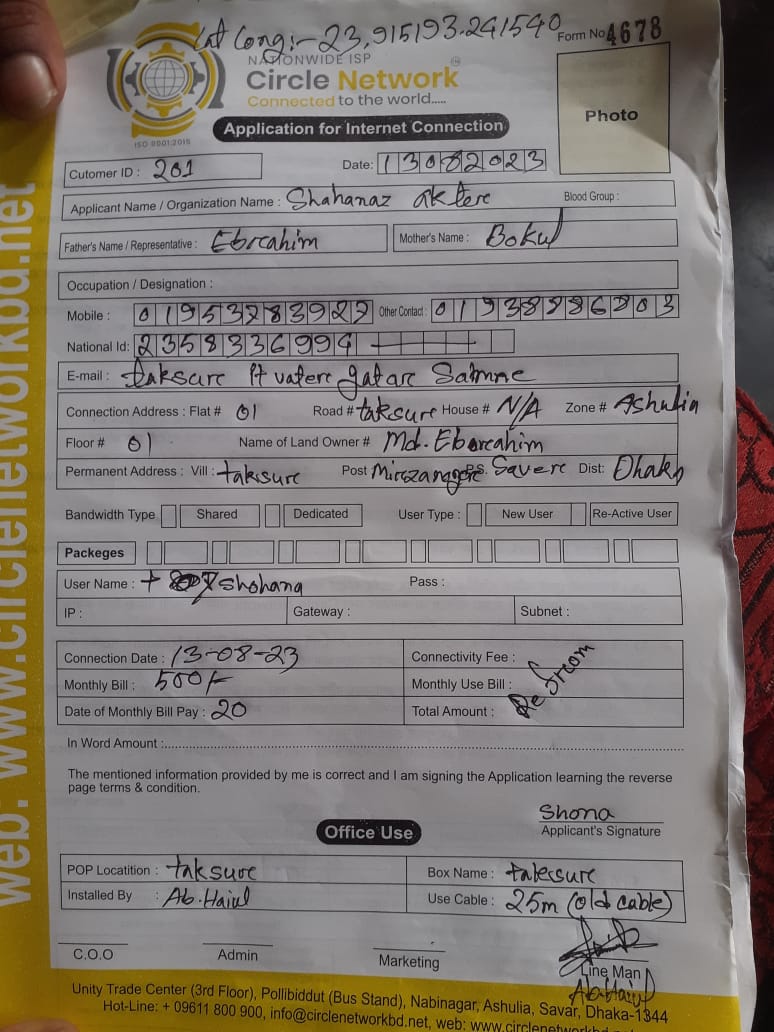 Lat Long:- 23.915193.241540
Form No 4678
NATIONWIDE ISP
Circle Network
Connected to the world.....
ISO 9001:2015
Application for Internet Connection
Photo
Cutomer ID : 201
Date: 13082023
Applicant Name / Organization Name : Shahanaz akter Blood Group :
Father's Name / Representative : Ebrcahim Mother's Name : Bokul
Occupation / Designation :
Mobile : Other Contact :
National Id: 2358336994
E-mail : taksure
Connection Address : Flat # 01 Road # taksure House # N/A Zone # Ashulia
Floor # 01 Name of Land Owner # Md. Eborcahim
Permanent Address : Vill : taksure Post P.S. Savere Dist: Dhaka
Bandwidth Type Shared Dedicated User Type : New User Re-Active User
Packeges
User Name : Shohana Pass :
IP : Gateway : Subnet :
Connection Date : 13-08-23 Connectivity Fee :
Monthly Bill : 500/- Monthly Use Bill :
Date of Monthly Bill Pay : 20 Total Amount :
In Word Amount :
The mentioned information provided by me is correct and I am signing the Application learning the reverse
page terms & condition.
Shona
Applicant's Signature
Office Use
POP Locatition : taksure Box Name : taksure
Installed By : Ab. Haiul Use Cable : 25m (old cable)
C.O.O Admin Marketing Line Man
Ab. Haiul
Unity Trade Center (3rd Floor), Pollibiddut (Bus Stand), Nabinagar, Ashulia, Savar, Dhaka-1344
Hot-Line: + 09611 800 900, info@circlenetworkbd.net, web: www.circlenetworkbd.net
web: www.circlenetworkbd.net